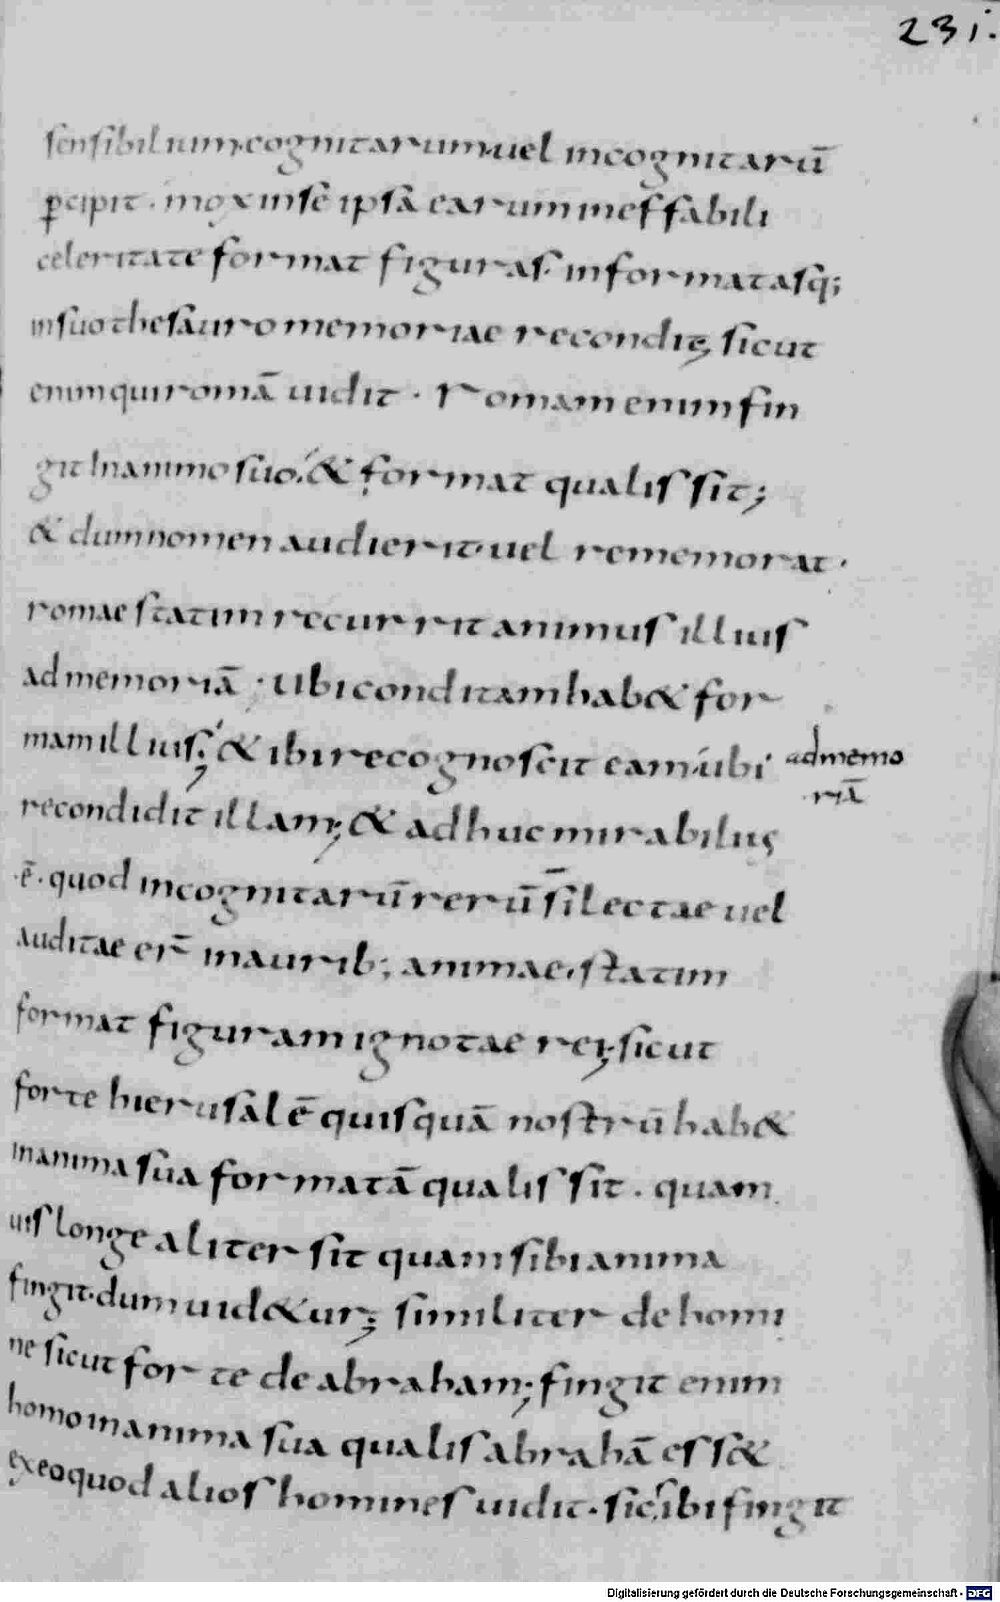 231.
sensibilium. cognitarum. uel incognitarū
ꝑcipit. mox inse ipsā earum ineffabili
celeritate format figuras. informatasq;
insuo thesauro memoriae recondit; sicut
enim qui romā uidit. Romam enim fin
git Inanimo suo. & format qualis sit;
& dum nomen audierit. uel rememorat.
romae statim recurrit animus illius
ad memoriā. Ubi conditam hab& for
mam illius; & ibi recognoscit eam. ubi
admemo
riā
recondidit illam; & adhuc mirabilius
.ē. quod incognitarū rerū si lectae uel
auditae er̄ inaurib; animae. statim
format figuram ignotae rei; sicut
forte hierusalē quisquā nostrū hab&
inanima sua formatā qualis sit. quam
uis longe aliter sit quam sibi anima
fingit. dum uid&ur; similiter de homi
ne sicut forte de abraham; fingit enim
homo inanima sua qualis abrahā ess&
ex eo quod alios homines uidit. sic sibi fingit
Digitalisierung gefördert durch die Deutsche Forschungsgemeinschaft - DFG